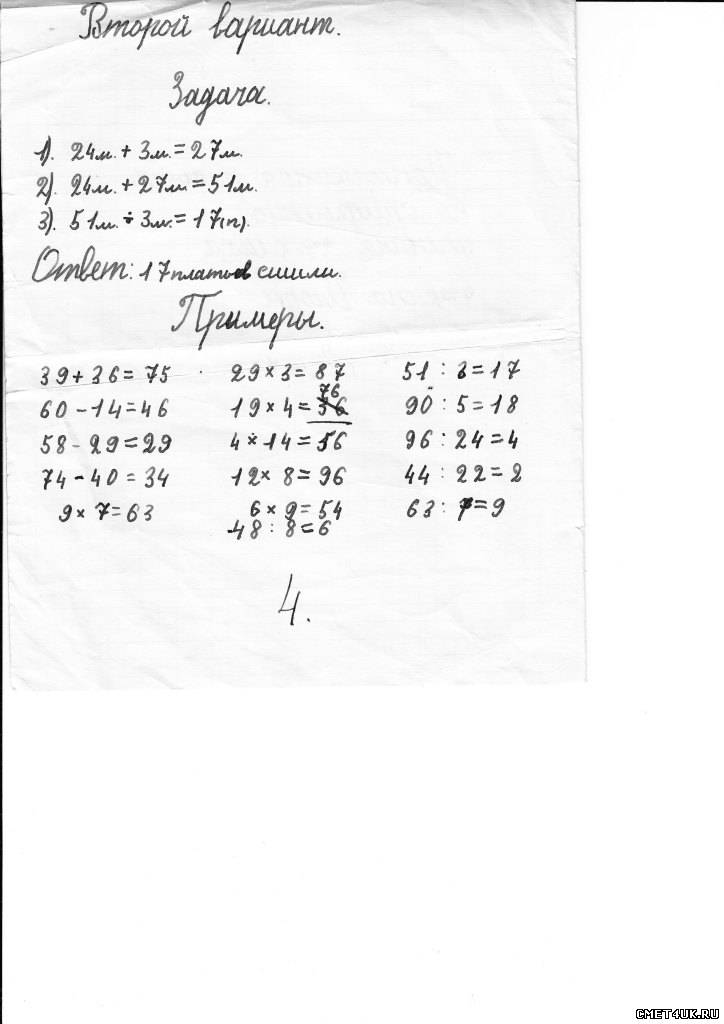 Второй вариант.
Задача.
1). 24м. + 3м. = 27м.
2). 24м. + 27м = 51м.
3). 51м. ÷ 3м. = 17(п).
Ответ: 17 платьев сшили.
Примеры.
39 + 36 = 75 29 × 3 = 87 51 : 3 = 17
76
60 - 14 = 46 19 × 4 = 36 90 : 5 = 18
58 - 29 = 29 4 × 14 = 56 96 : 24 = 4
74 - 40 = 34 12 × 8 = 96 44 : 22 = 2
9 × 7 = 63 6 × 9 = 54 63 : 7 = 9
48 : 8 = 6
4.
CMET4UK.RU